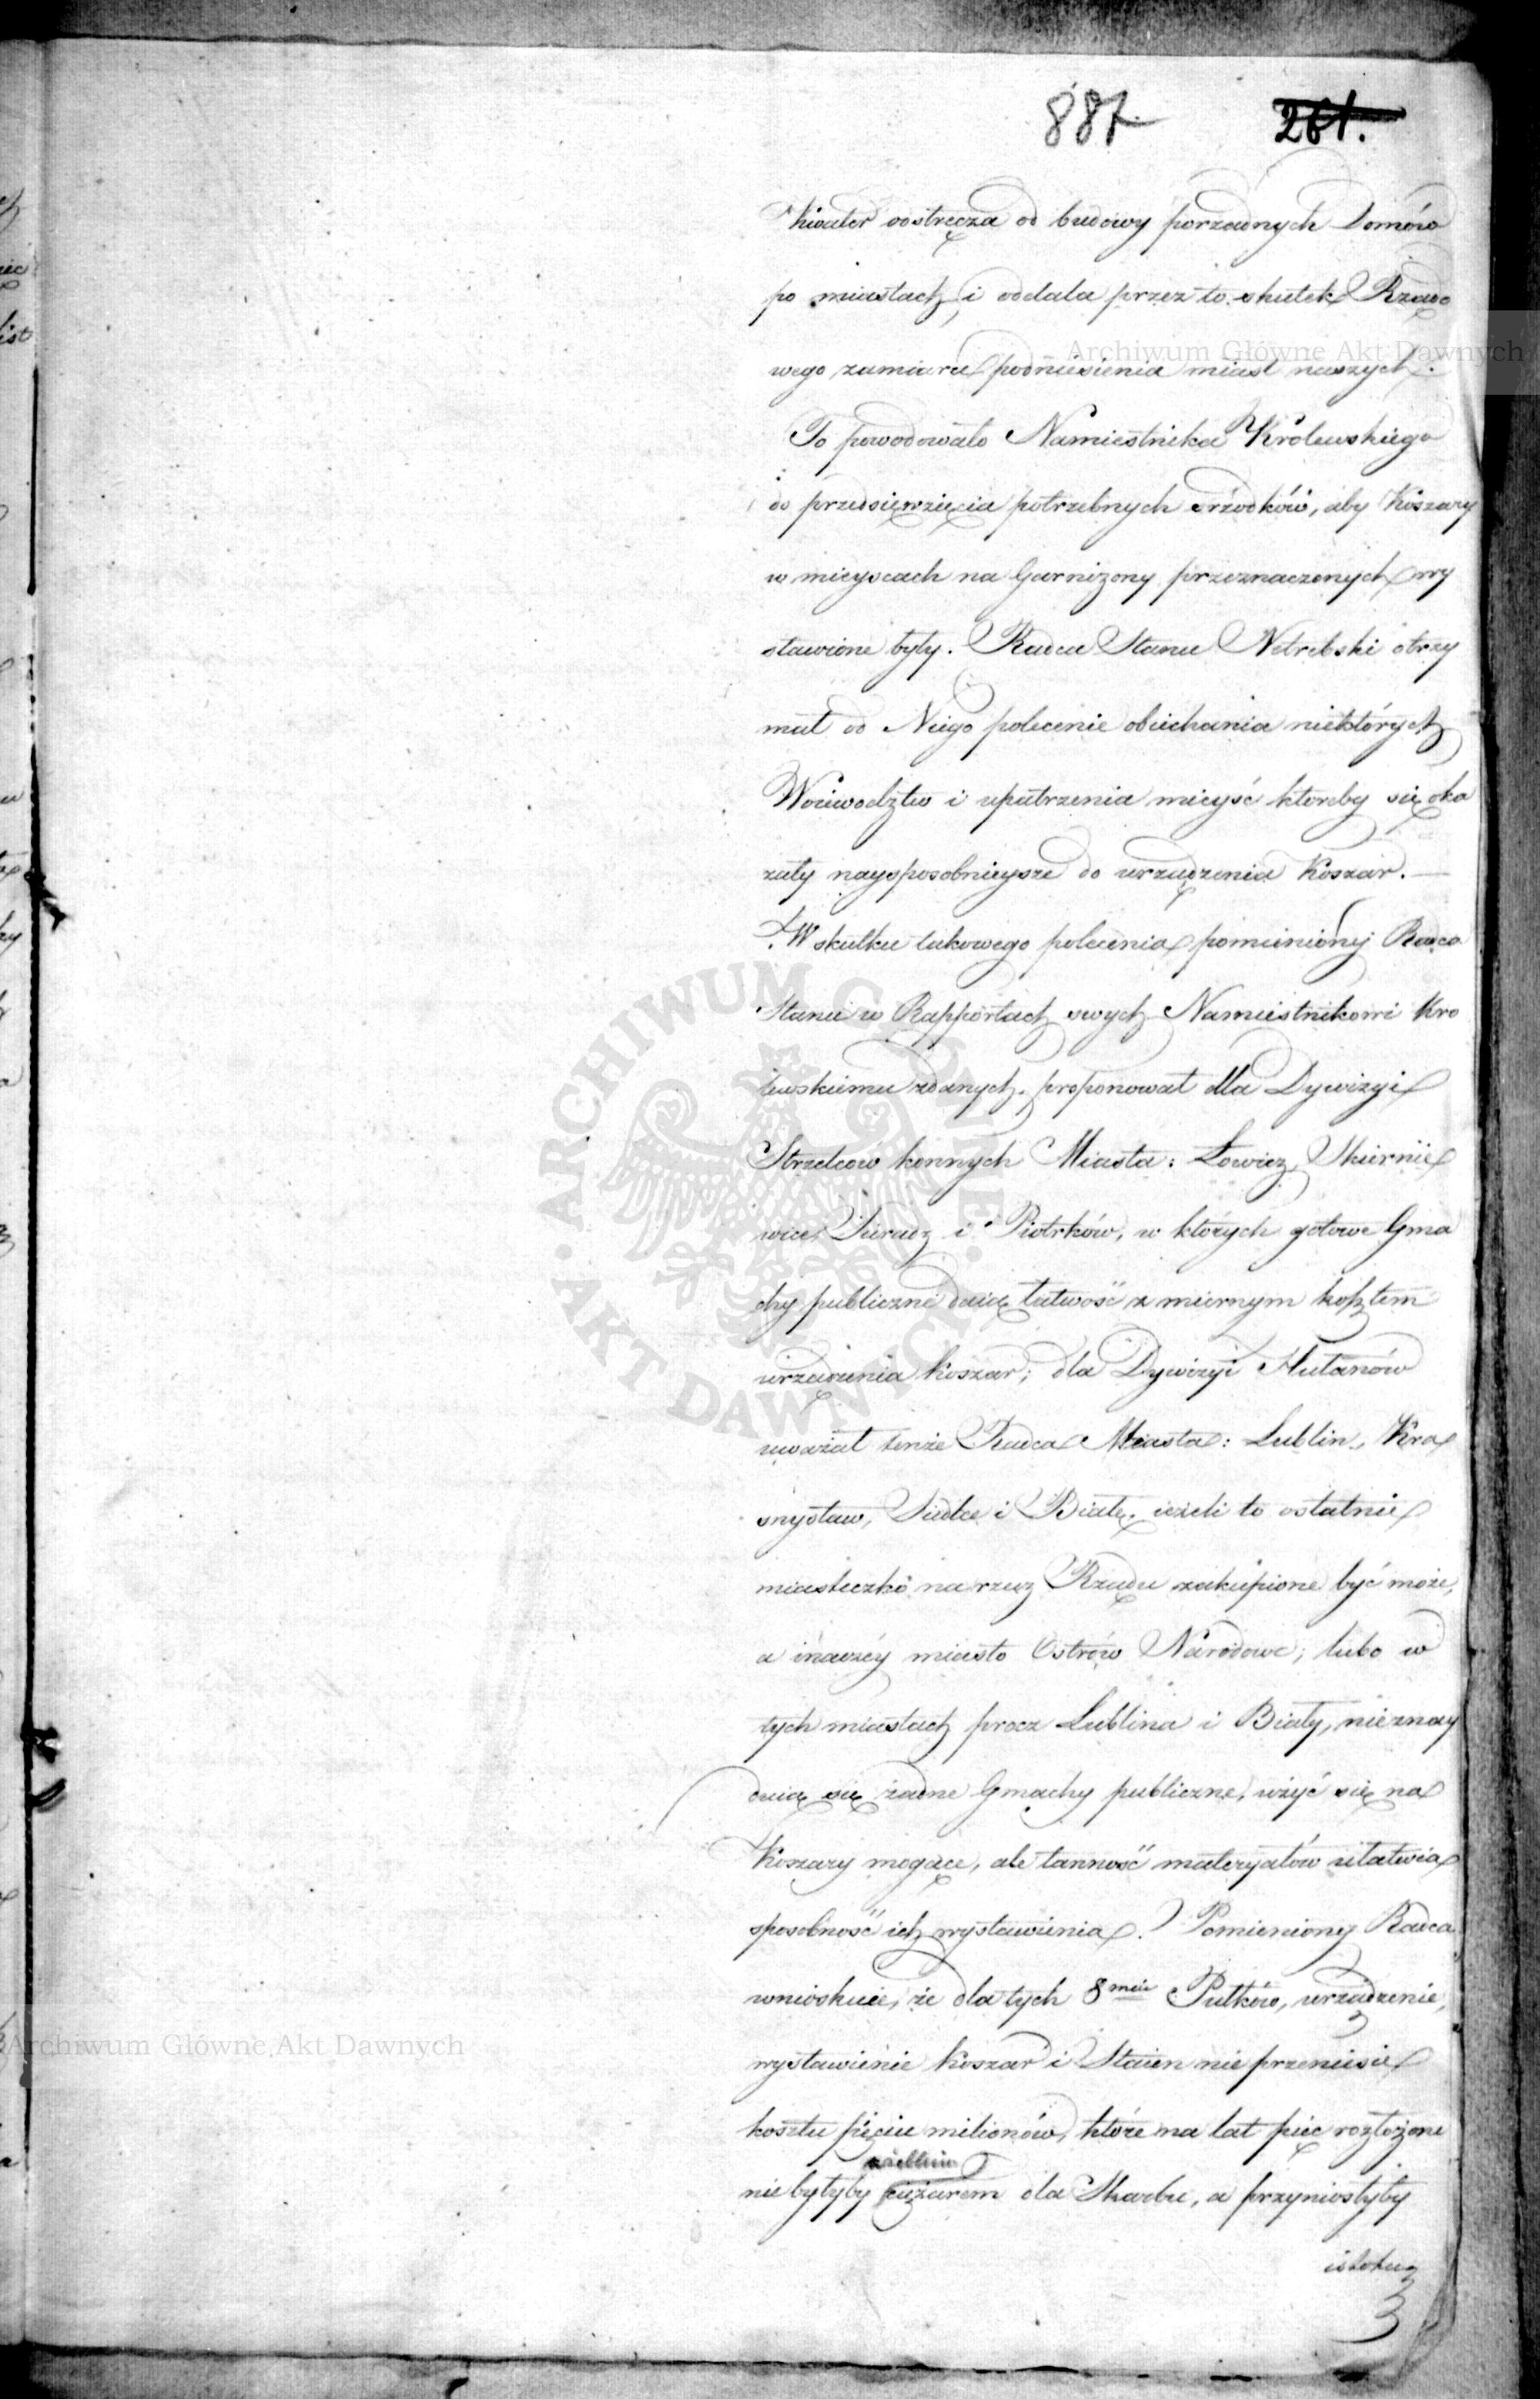 887 261.
Kwater odstręcza od budowy porządnych Domów
po miastach, i oddala przez to skutek Rządo
wego zamiaru podniesienia miast naszych.
To powodowało Namiestnika Królewskiego
do przedsięwzięcia potrzebnych śrzodków, aby Koszary
w mieyscach na Garnizony przeznaczonych wy
stawione były. Radca Stanu Netrebski otrzy
mał od Niego polecenie obiechania niektórych
Woiewodztw i upatrzenia mieysć któreby się oka
zały naysposobnieysze do urządzenia Koszar.—
W skutku takowego polecenia pomieniony Radca
Stanu w Rapportach swych Namiestnikowi Kró
lewskiemu zdanych, proponował dla Dywizyi
Strzelców konnych Miasta: Łowicz, Skiernie
wice, Sieradz i Piotrków, w których gotowe Gma
chy publiczne daią łatwość z miernym kosztem
urządzenia koszar; dla Dywizyi Hułanów
uważał tenże Radca Miasta: Lublin, Kra
snystaw, Siedlce i Białę, ieżeli to ostatnie
miasteczko na rzecz Rządu zakupione być może,
a inaczéy miasto Ostrów Narodowe; lubo w
tych miastach prócz Lublina i Biały, nie znay
duią się żadne Gmachy publiczne, użyć się na
Koszary mogące, ale tanność materyałów ułatwia
sposobność ich wystawienia. Pomieniony Radca
wnioskuie, że dla tych 8miu Pułków, urządzenie,
wystawienie koszar i Staien nie przeniesie
kosztu pięciu milionów, które na lat pięć rozłożone
nie byłyby wielkim ciężarem dla Skarbu, a przyniosłyby
istotną
Archiwum Główne Akt Dawnych
Archiwum Główne Akt Dawnych
ARCHIWUM GŁÓWNE · AKT DAWNYCH ·